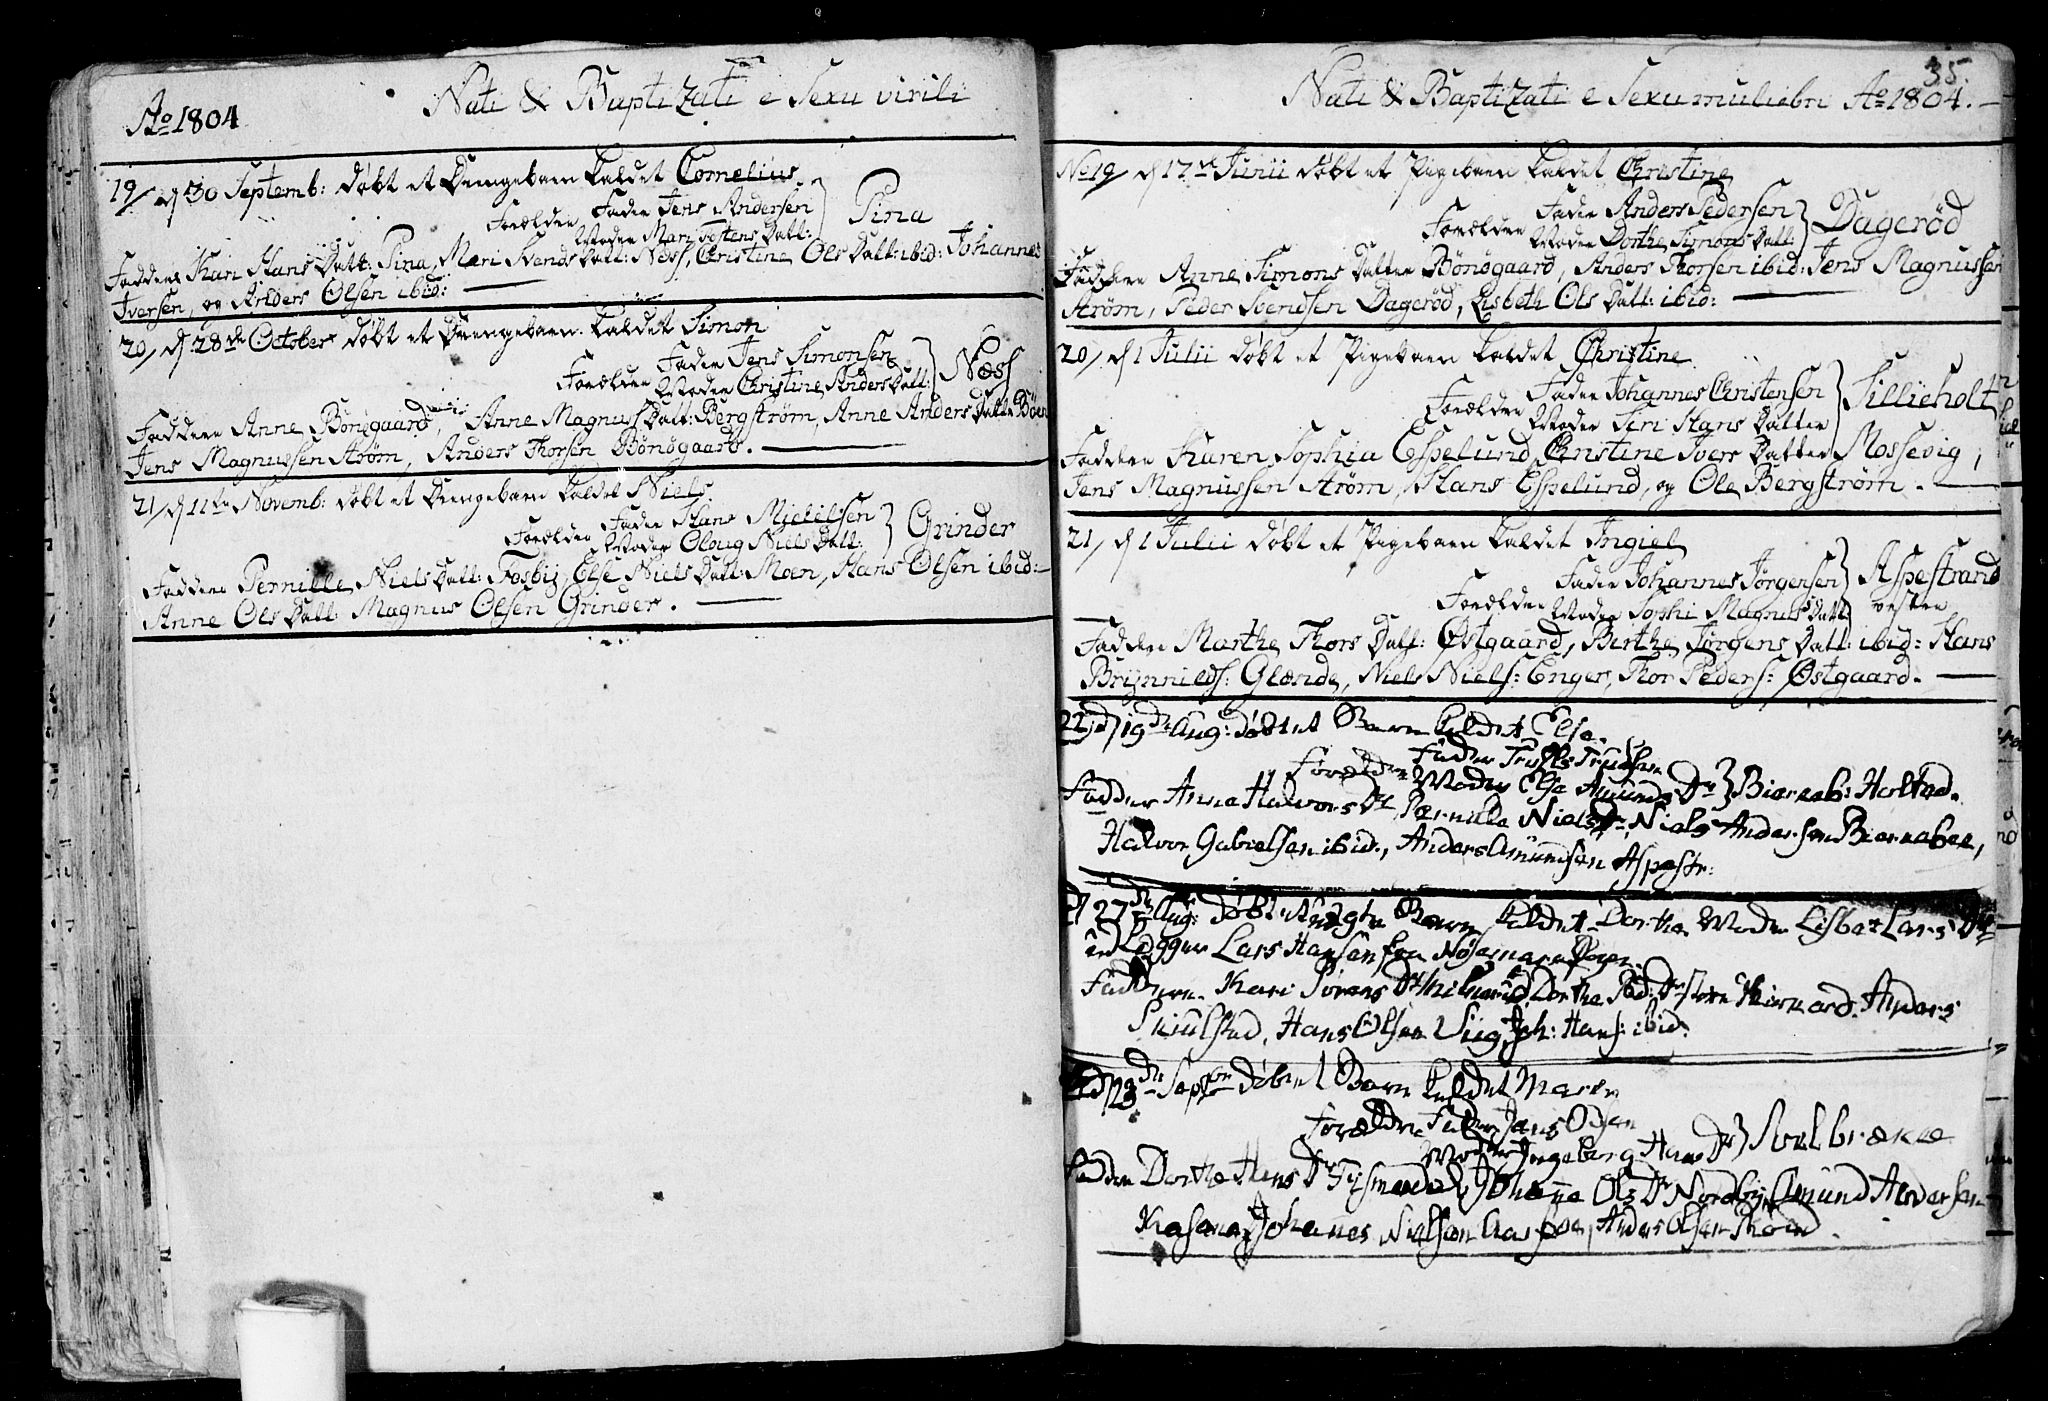 Ao 1804
Nati & Baptizati e Sexu virili
19/ d 30 Septemb: døbt et Drengebarn kaldet Cornelius
Forældre Fader Jens Andersen
Moder Mari Tostens Datt: } Pina
Faddere Kari Hans Datt: Pina, Mari Svends Datt: Næss, Christine Ols Datt: ibid: Johannes
Iversen, og Anders Olsen ibid:
20/ d 28de October døbt et Drengebarn kaldet Simon
Forældre Fader Jens Simonsen
Moder Christine Anders Datt: } Næss
Faddere Anne Bönögaard, Anne Magnus Datt: Bergstrøm, Anne Anders Datter Böen
Jens Magnussen Strøm, Anders Thorsen Bönögaard.
21/ d 11te Novemb: døbt et Drengebarn kaldet Niels
Forældre Fader Hans Mielelsen
Moder Oloug Niels Datt: } Grinder
Faddere Pernille Niels Datt: Fosbÿ, Else Niels Datt: Moen, Hans Olsen ibid:
Anne Ols Datt: Magnus Olsen Grinder.
35.
Nati & Baptizati e Sexu muliebri Ao 1804.
No 19/ d 17de Junii døbt et Pigebarn kaldet Christine
Forældre Fader Anders Pedersen
Moder Dorthe Simons Datt: } Dagerød
Faddere Anne Simons Datter Bönögaard, Anders Thorsen ibid: Jens Magnussen
Strøm, Peder Svendsen Dagerød, Lisbeth Ols Datt: ibid:
20/ d 1 Julii døbt et Pigebarn kaldet Christine
Forældre Fader Johannes Christensen
Moder Siri Hans Datter } Sillieholt
Faddere Karen Sophia Espelund, Christine Ivers Datter Mossevig,
Jens Magnussen Strøm, Hans Espelund, og Ole Bergstrøm.
21/ d 1 Julii døbt et Pigebarn kaldet Ingiel
Forældre Fader Johannes Jørgensen
Moder Sophi Magnus Datt } Aspestrand vestre
Faddere Marthe Thors Datt: Østgaard, Birthe Jørgens Datt: ibid: Hans
Brynnilds: Glænde, Niels Niels: Enger, Thor Peders: Østgaard.
22, d 19de Aug: døbt et Barn kaldet Else.
Forældre Fader Truls Trulsen
Moder Else Amunds Dr } Biørneb: Holtad.
Fadder Anne Halvors Dr, Pernille Niels Dr, Niels Andersen Biørneboe,
Halvor Gabrielsen ibid., Anders Amundsen Aspestr:
d 27de Aug: døbt et uægte Barn kaldet Dorthe. Moder Lisbet Lars Dr
udlægger Lars Hansen fra
Faddere. Kari Sørens Dr Dorthe Ped: Dr Anders
Skiulstad, Hans Olsen Joh: Hans: ibid.
d 23de Septbr døbt et Barn kaldet Maren
Forældre Fader Jens Olsen
Moder Ingeborg Hans Dr }
Fadder Dorthe Hans Dr Johanne Ols Dr Nordby, Amund Halvorsen
Johannes Nielsen Anders Olsen